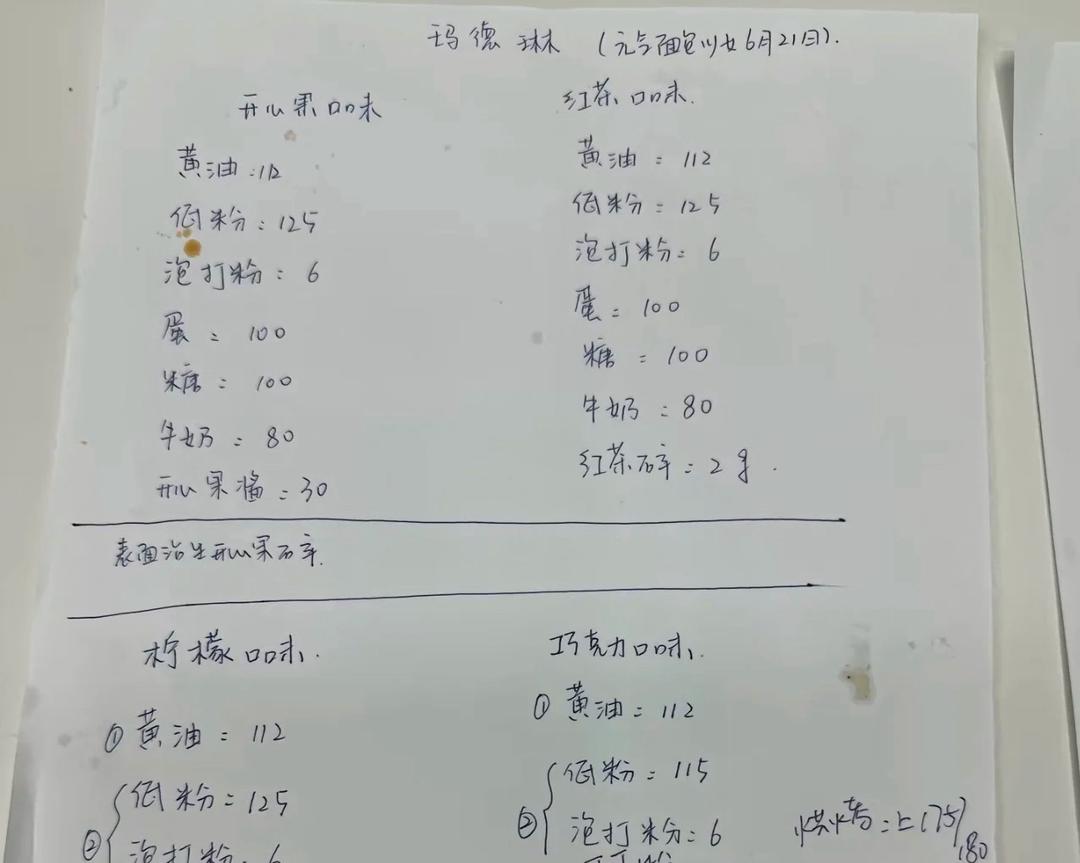 玛德琳 (元气面包少女6月21日).
开心果口味
黄油:112
低粉:125
泡打粉:6
蛋:100
糖:100
牛奶:80
开心果酱:30
红茶口味.
黄油:112
低粉:125
泡打粉:6
蛋:100
糖:100
牛奶:80
红茶碎:2g.
表面沾生开心果碎.
柠檬口味.
①黄油:112
②低粉:125
泡打粉:6
巧克力口味.
①黄油:112
②低粉:115
泡打粉:6
烘烤:上175/180